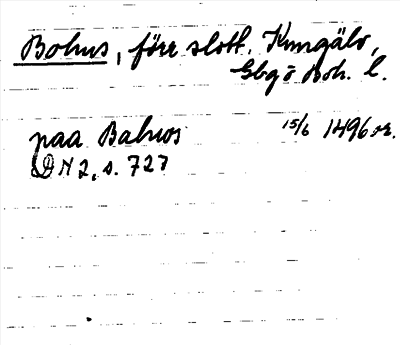 Bohus, förr slott. Kungälv,
Gbg o Boh. l.
paa Bahws 15/6 1496 or.
DN 2, s. 727